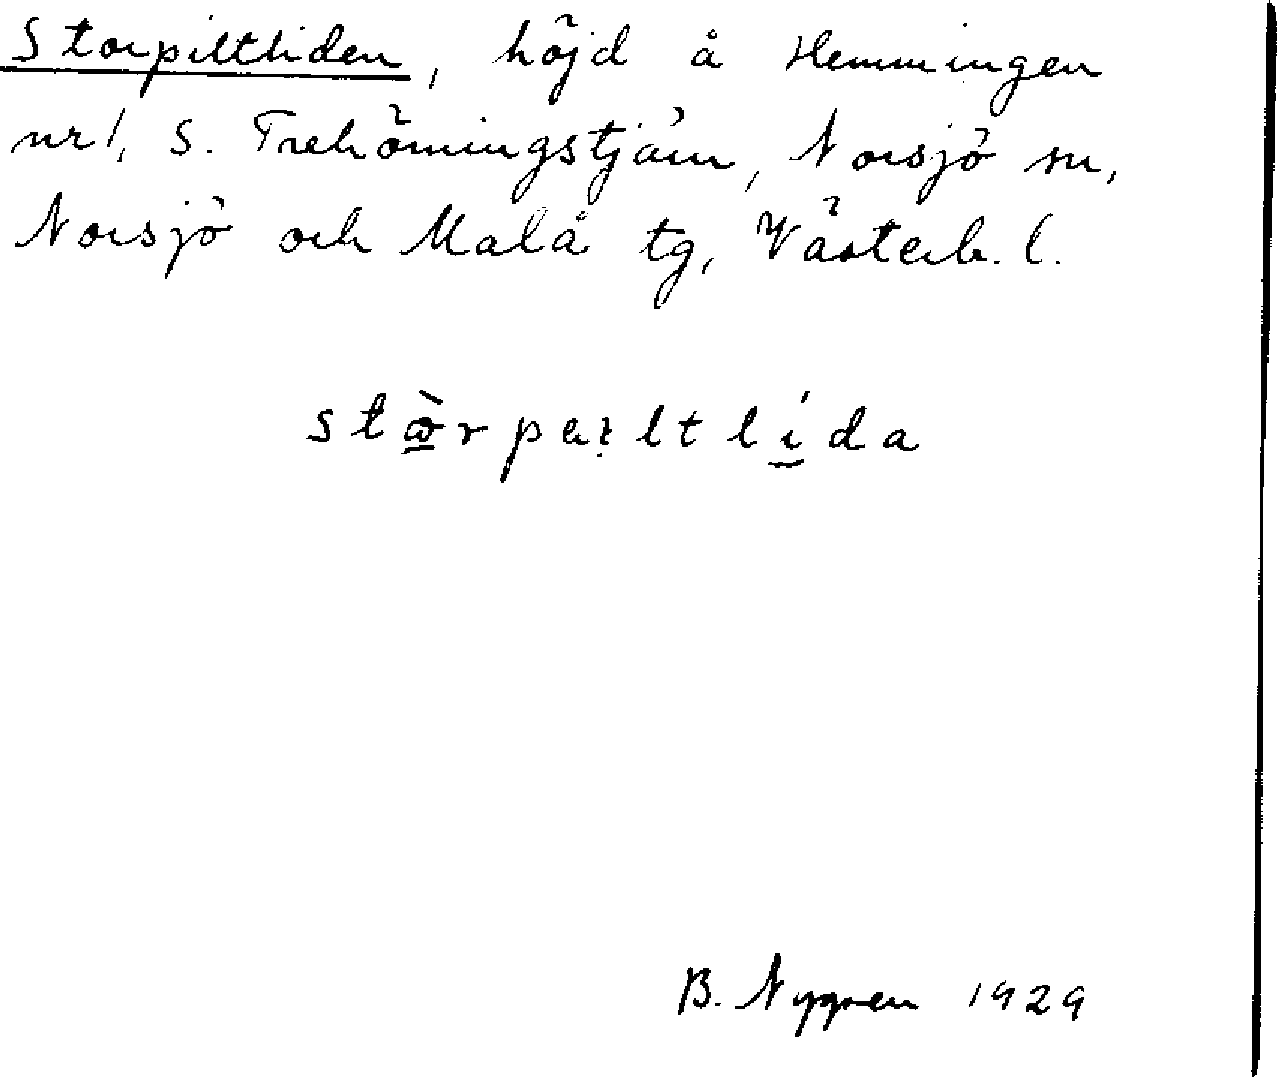 Storpiltliden, höjd å Hemmingen
nr 1, S. Trehörningstjärn, Norsjö sn,
Norsjö och Malå tg, Västerb. l.
B. Nygren 1929